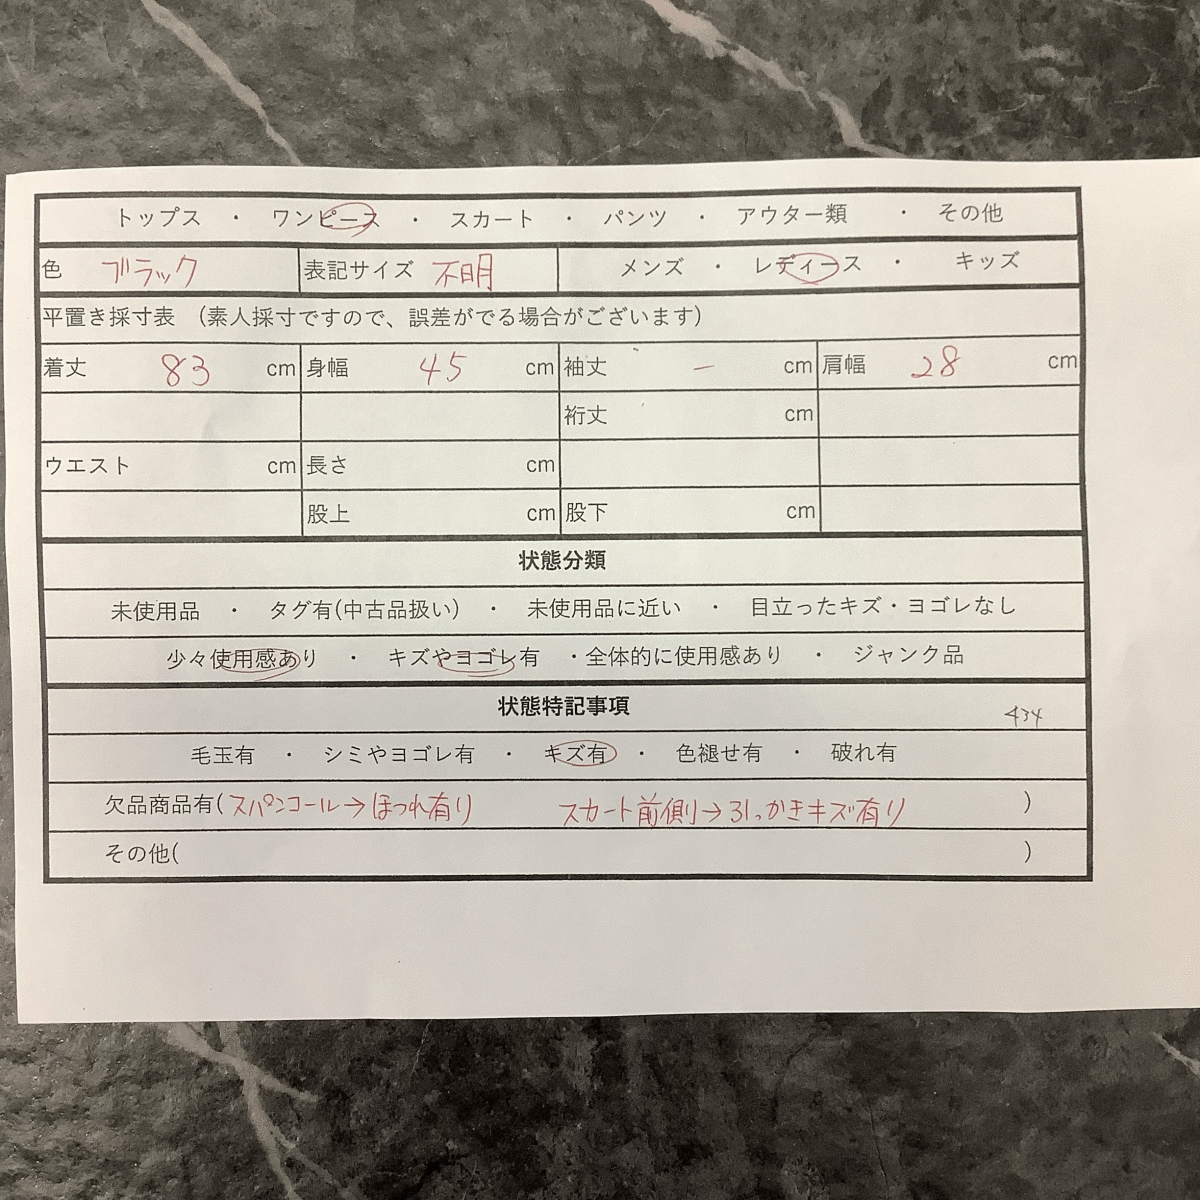 トップス ・ ワンピース ・ スカート ・ パンツ ・ アウター類 ・ その他
色 ブラック 表記サイズ 不明 メンズ ・ レディース ・ キッズ
平置き採寸表 （素人採寸ですので、誤差がでる場合がございます）
着丈 83 cm 身幅 45 cm 袖丈 ー cm 肩幅 28 cm
裄丈 cm
ウエスト cm 長さ cm
股上 cm 股下 cm
状態分類
未使用品 ・ タグ有(中古品扱い) ・ 未使用品に近い ・ 目立ったキズ・ヨゴレなし
少々使用感あり ・ キズやヨゴレ有 ・全体的に使用感あり ・ ジャンク品
状態特記事項 434
毛玉有 ・ シミやヨゴレ有 ・ キズ有 ・ 色褪せ有 ・ 破れ有
欠品商品有(スパンコール→ほつれ有り スカート前側→引っかきキズ有り )
その他( )